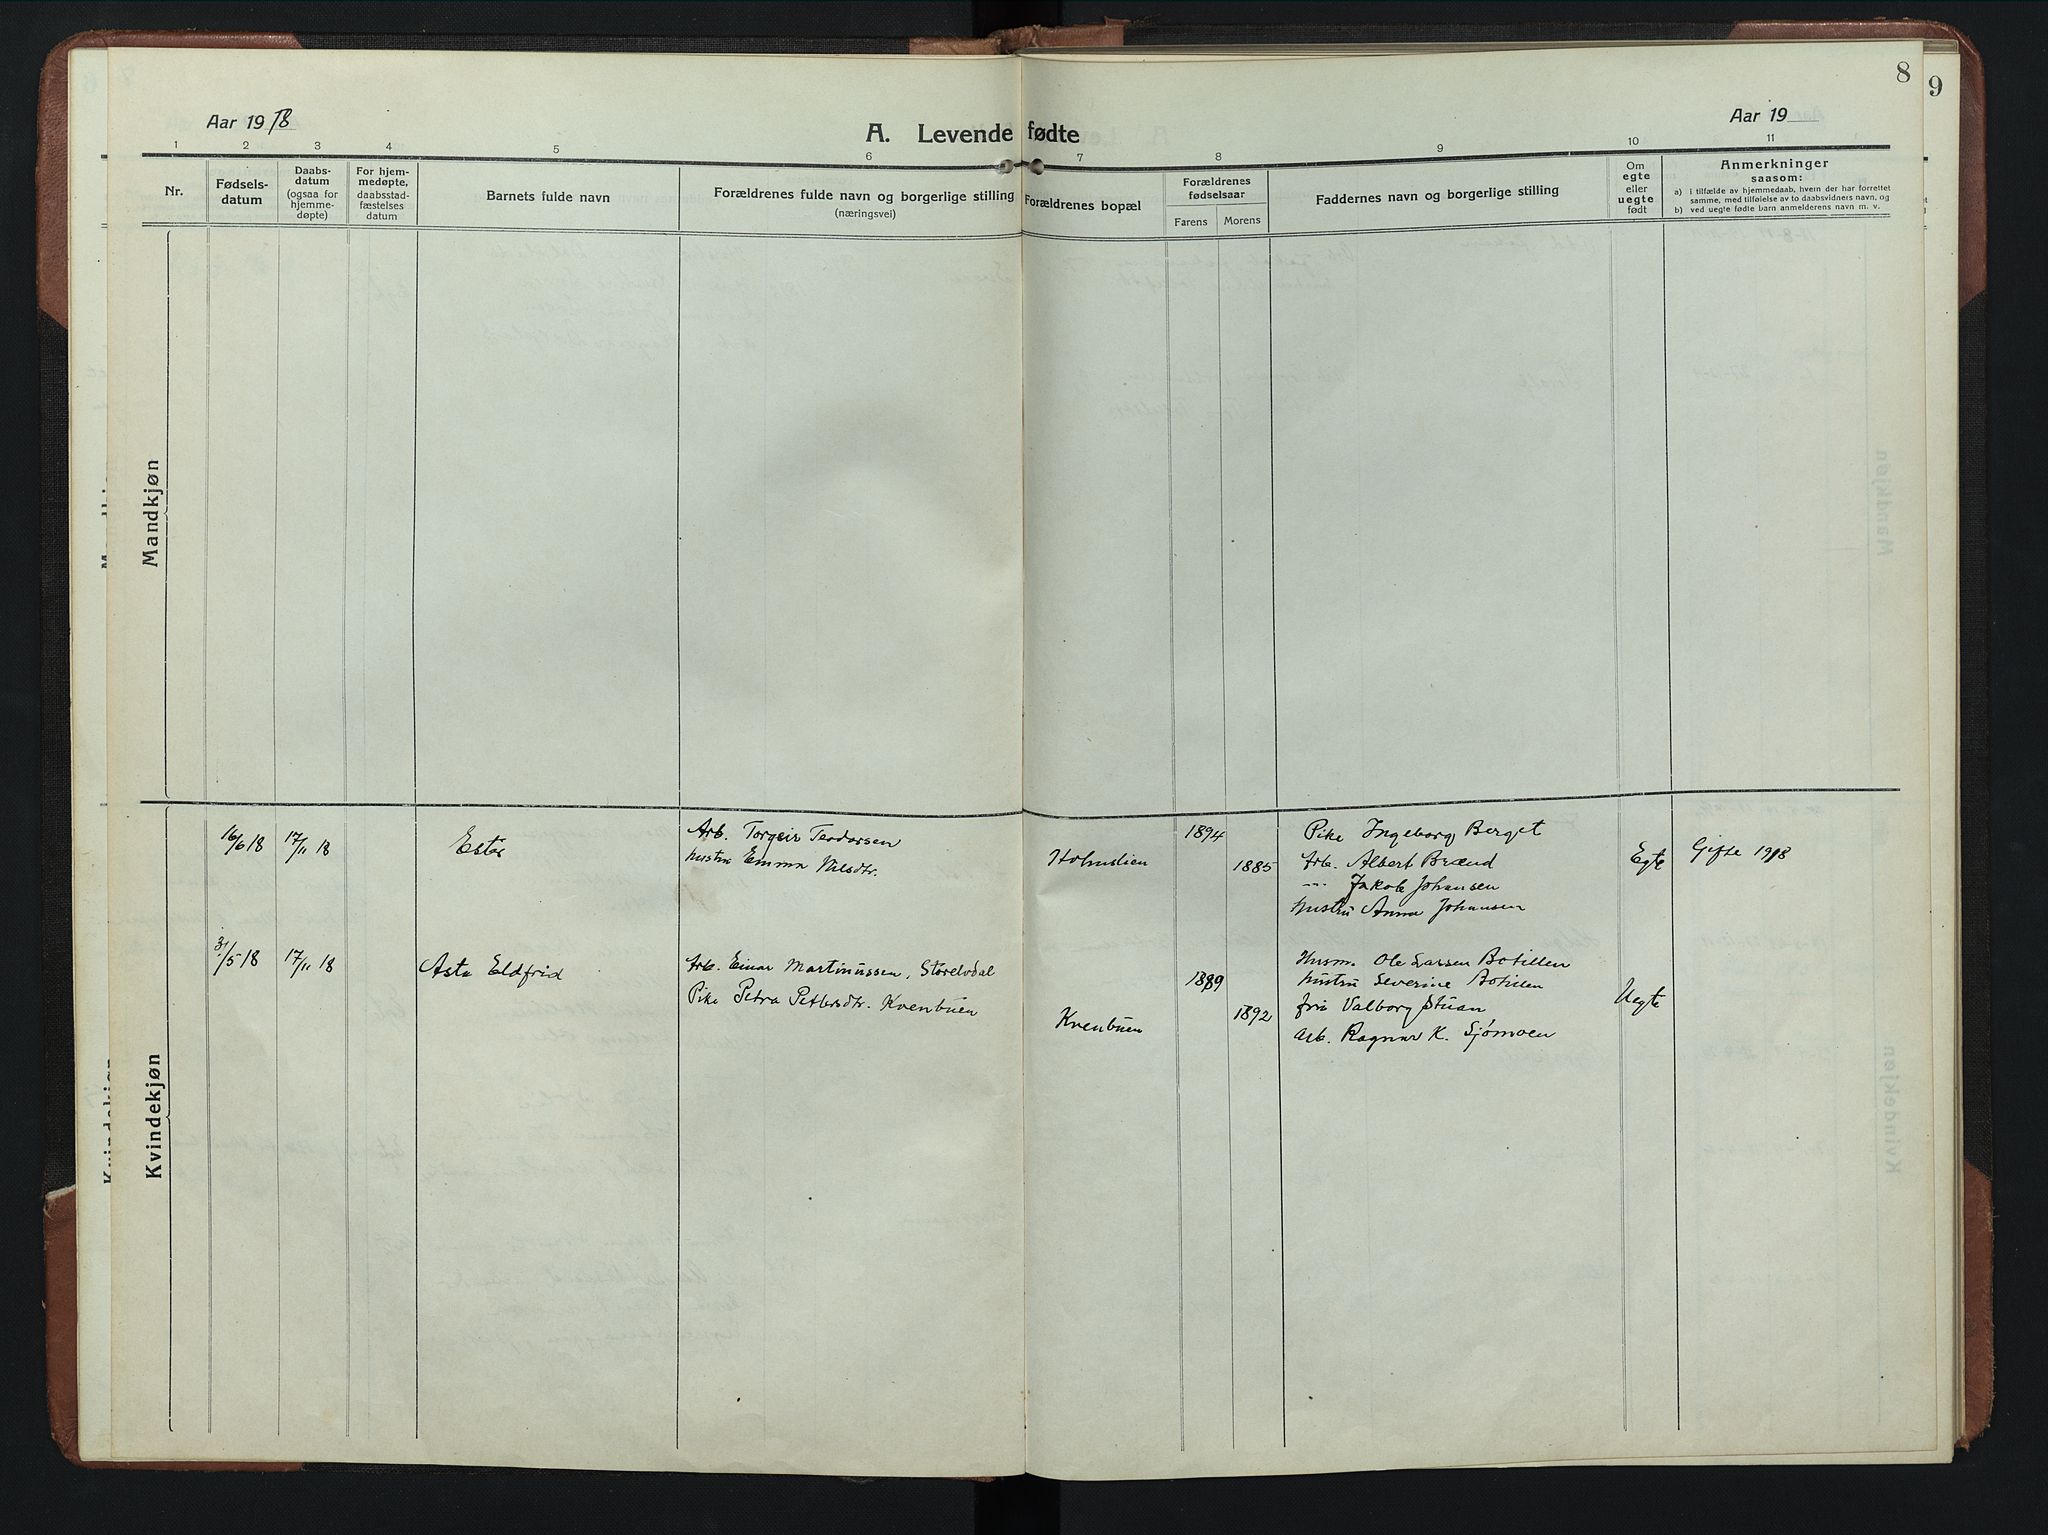 8
9
Aar 1918
A. Levende fødte
Aar 19
1 2 3 4 5 6 7 8 9 10 11
Nr.
Fødsels-
datum
Daabs-
datum
(ogsaa for
hjemme-
døpte)
For hjem-
medøpte,
daabsstad-
fæstelses
datum
Barnets fulde navn
Forældrenes fulde navn og borgerlige stilling
(næringsvei)
Forældrenes bopæl
Forældrenes
fødselsaar
Farens Morens
Faddernes navn og borgerlige stilling
Om
egte
eller
uegte
født
Anmerkninger
saasom:
a) i tilfælde av hjemmedaab, hvem der har forrettet
samme, med tilføielse av to daabsvidners navn, og
b) ved uegte fødte barn anmelderens navn m. v.
Mandkjøn
Kvindekjøn
16/6 18
17/11 18
Ester
Arb. Torgeir Teodorsen
hustru Emma Nilsdtr.
Holmslien
1894
1885
Pike Ingeborg Berget
Arb. Albert Brænd
-"- Jakob Johansen
hustru Anna Johansen
Egte
Gifte 1918
31/5 18
17/11 18
Asta Eldfrid
Arb. Einar Martinussen, Storelvdal
Pike Petra Pettersdtr. Kvenbuen
Kvenbuen
1889
1892
Husm. Ole Larsen Botillen
hustru Severine Botillen
fru Valborg Stuan
Arb. Ragnar K. Sjømoen
Uegte